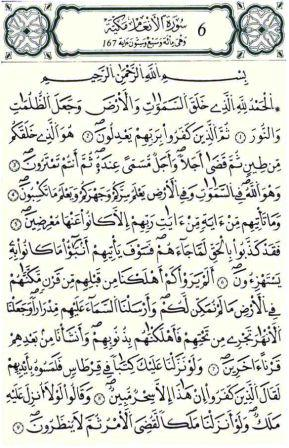 6 سورة الأنعام مكية
وهي مائة وسبع وستون آية 167
بسم الله الرحمن الرحيم
الحمد لله الذي خلق السموات والأرض وجعل الظلمات
والنور ثم الذين كفروا بربهم يعدلون هو الذي خلقكم
من طين ثم قضى أجلا وأجل مسمى عنده ثم أنتم تمترون
وهو الله في السموات وفي الأرض يعلم سركم وجهركم ويعلم ما تكسبون
وما تأتيهم من ءاية من ءايات ربهم إلا كانوا عنها معرضين
فقد كذبوا بالحق لما جاءهم فسوف يأتيهم أنبؤا ما كانوا به
يستهزءون ألم يروا كم أهلكنا من قبلهم من قرن مكنهم
في الأرض ما لم نمكن لكم وأرسلنا السماء عليهم مدرارا وجعلنا
الأنهر تجرى من تحتهم فأهلكنهم بذنوبهم وأنشأنا من بعدهم
قرنا ءاخرين ولو نزلنا عليك كتبا في قرطاس فلمسوه بأيديهم
لقال الذين كفروا إن هذا إلا سحر مبين وقالوا لولا أنزل عليه
ملك ولو أنزلنا ملكا لقضي الأمر ثم لا ينظرون